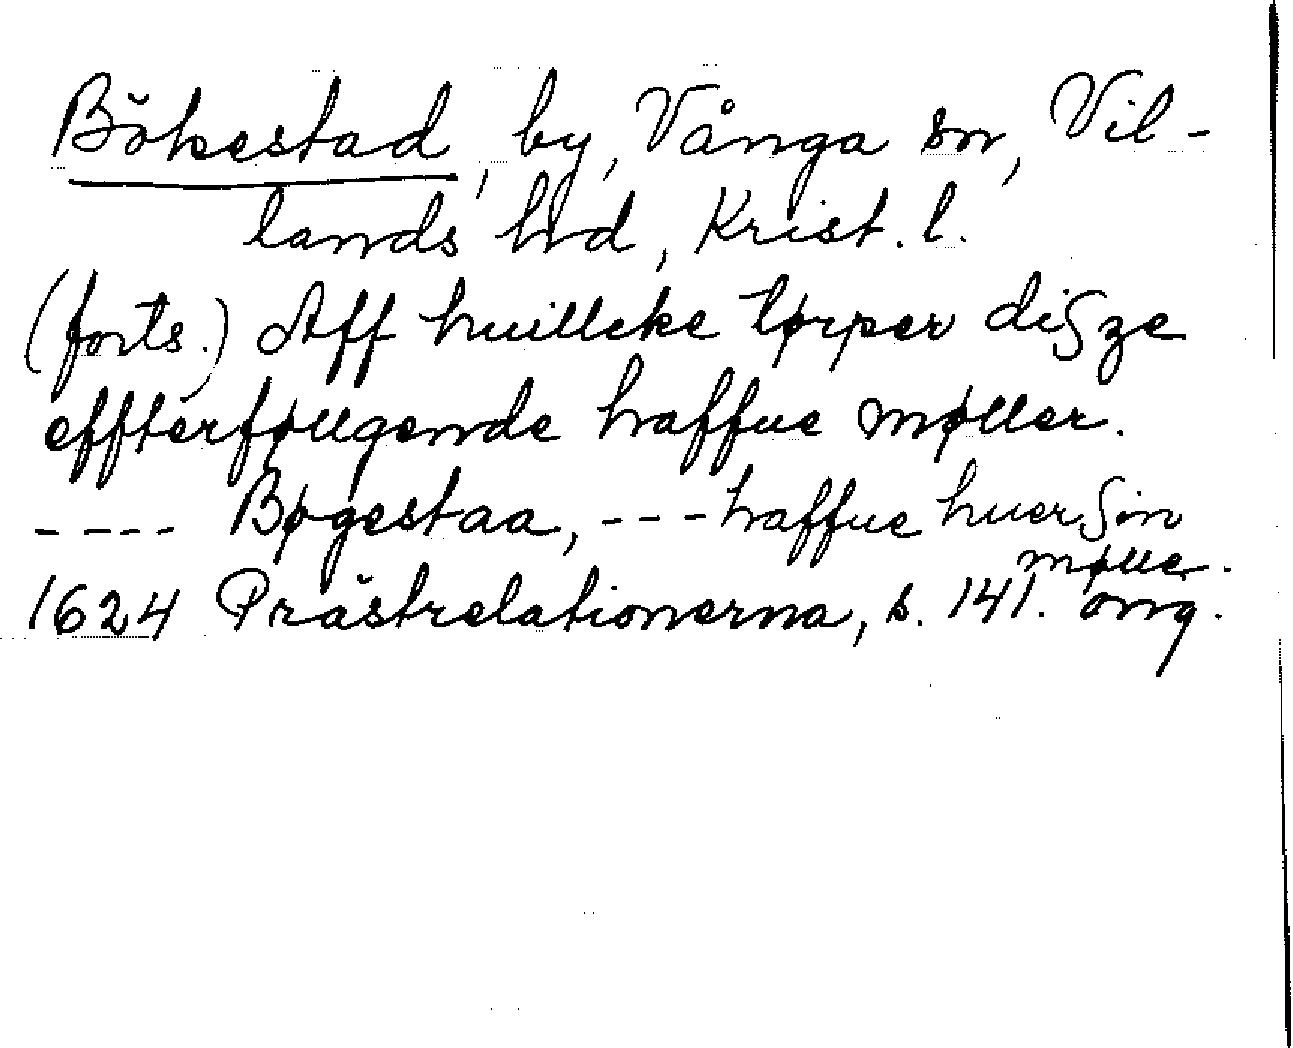 Bökestad, by, Vånga sn, Vil-
lands hd, Krist. l.
(forts.) Aff huillcke tørper disze
effterføllgende haffue møller.
---- Bøgestaa, --- haffue huer sin
mølle.
1624 Prästrelationerna, s. 141. omg.